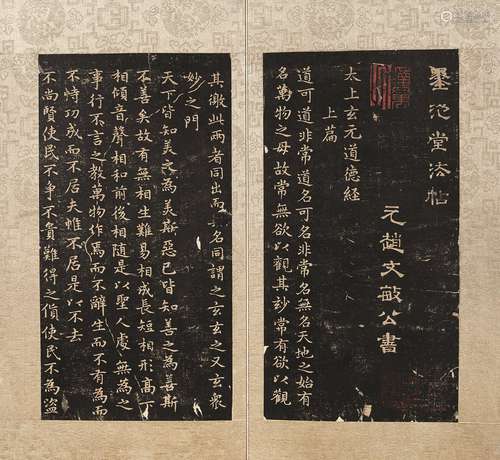 墨池堂法帖
元趙文敏公書
太上玄元道德經
上篇
道可道非常道名可名非常名無名天地之始有
名萬物之母故常無欲以觀其妙常有欲以觀
其徼此兩者同出而異名同謂之玄玄之又玄衆
妙之門
天下皆知美之為美斯惡已皆知善之為善斯
不善矣故有無相生難易相成長短相形高下
相傾音聲相和前後相隨是以聖人處無為之
事行不言之教萬物作焉而不辭生而不有為而
不恃功成而不居夫惟不居是以不去
不尚賢使民不爭不貴難得之貨使民不為盜